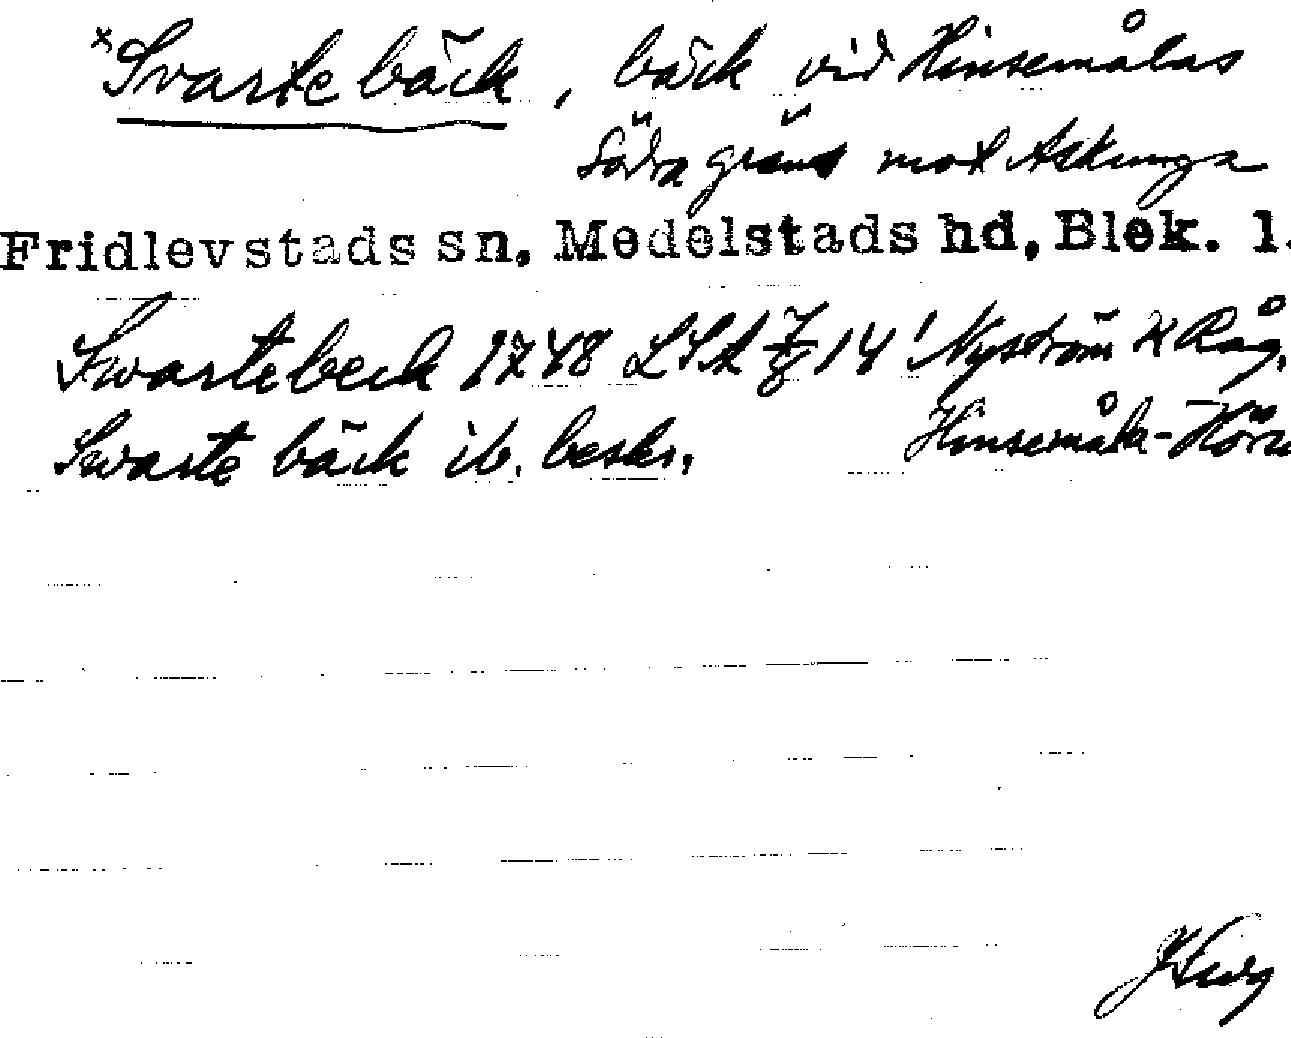 ×Svartebäck, bäck vid Hinsemålas
södra gräns mot Askunga
Fridlevstads sn, Medelstads hd, Blek. l.
Swartebeck 1748 LSA 14' Nyström K Råg.
Swarte bäck ib. beskr. Hinsemåla-